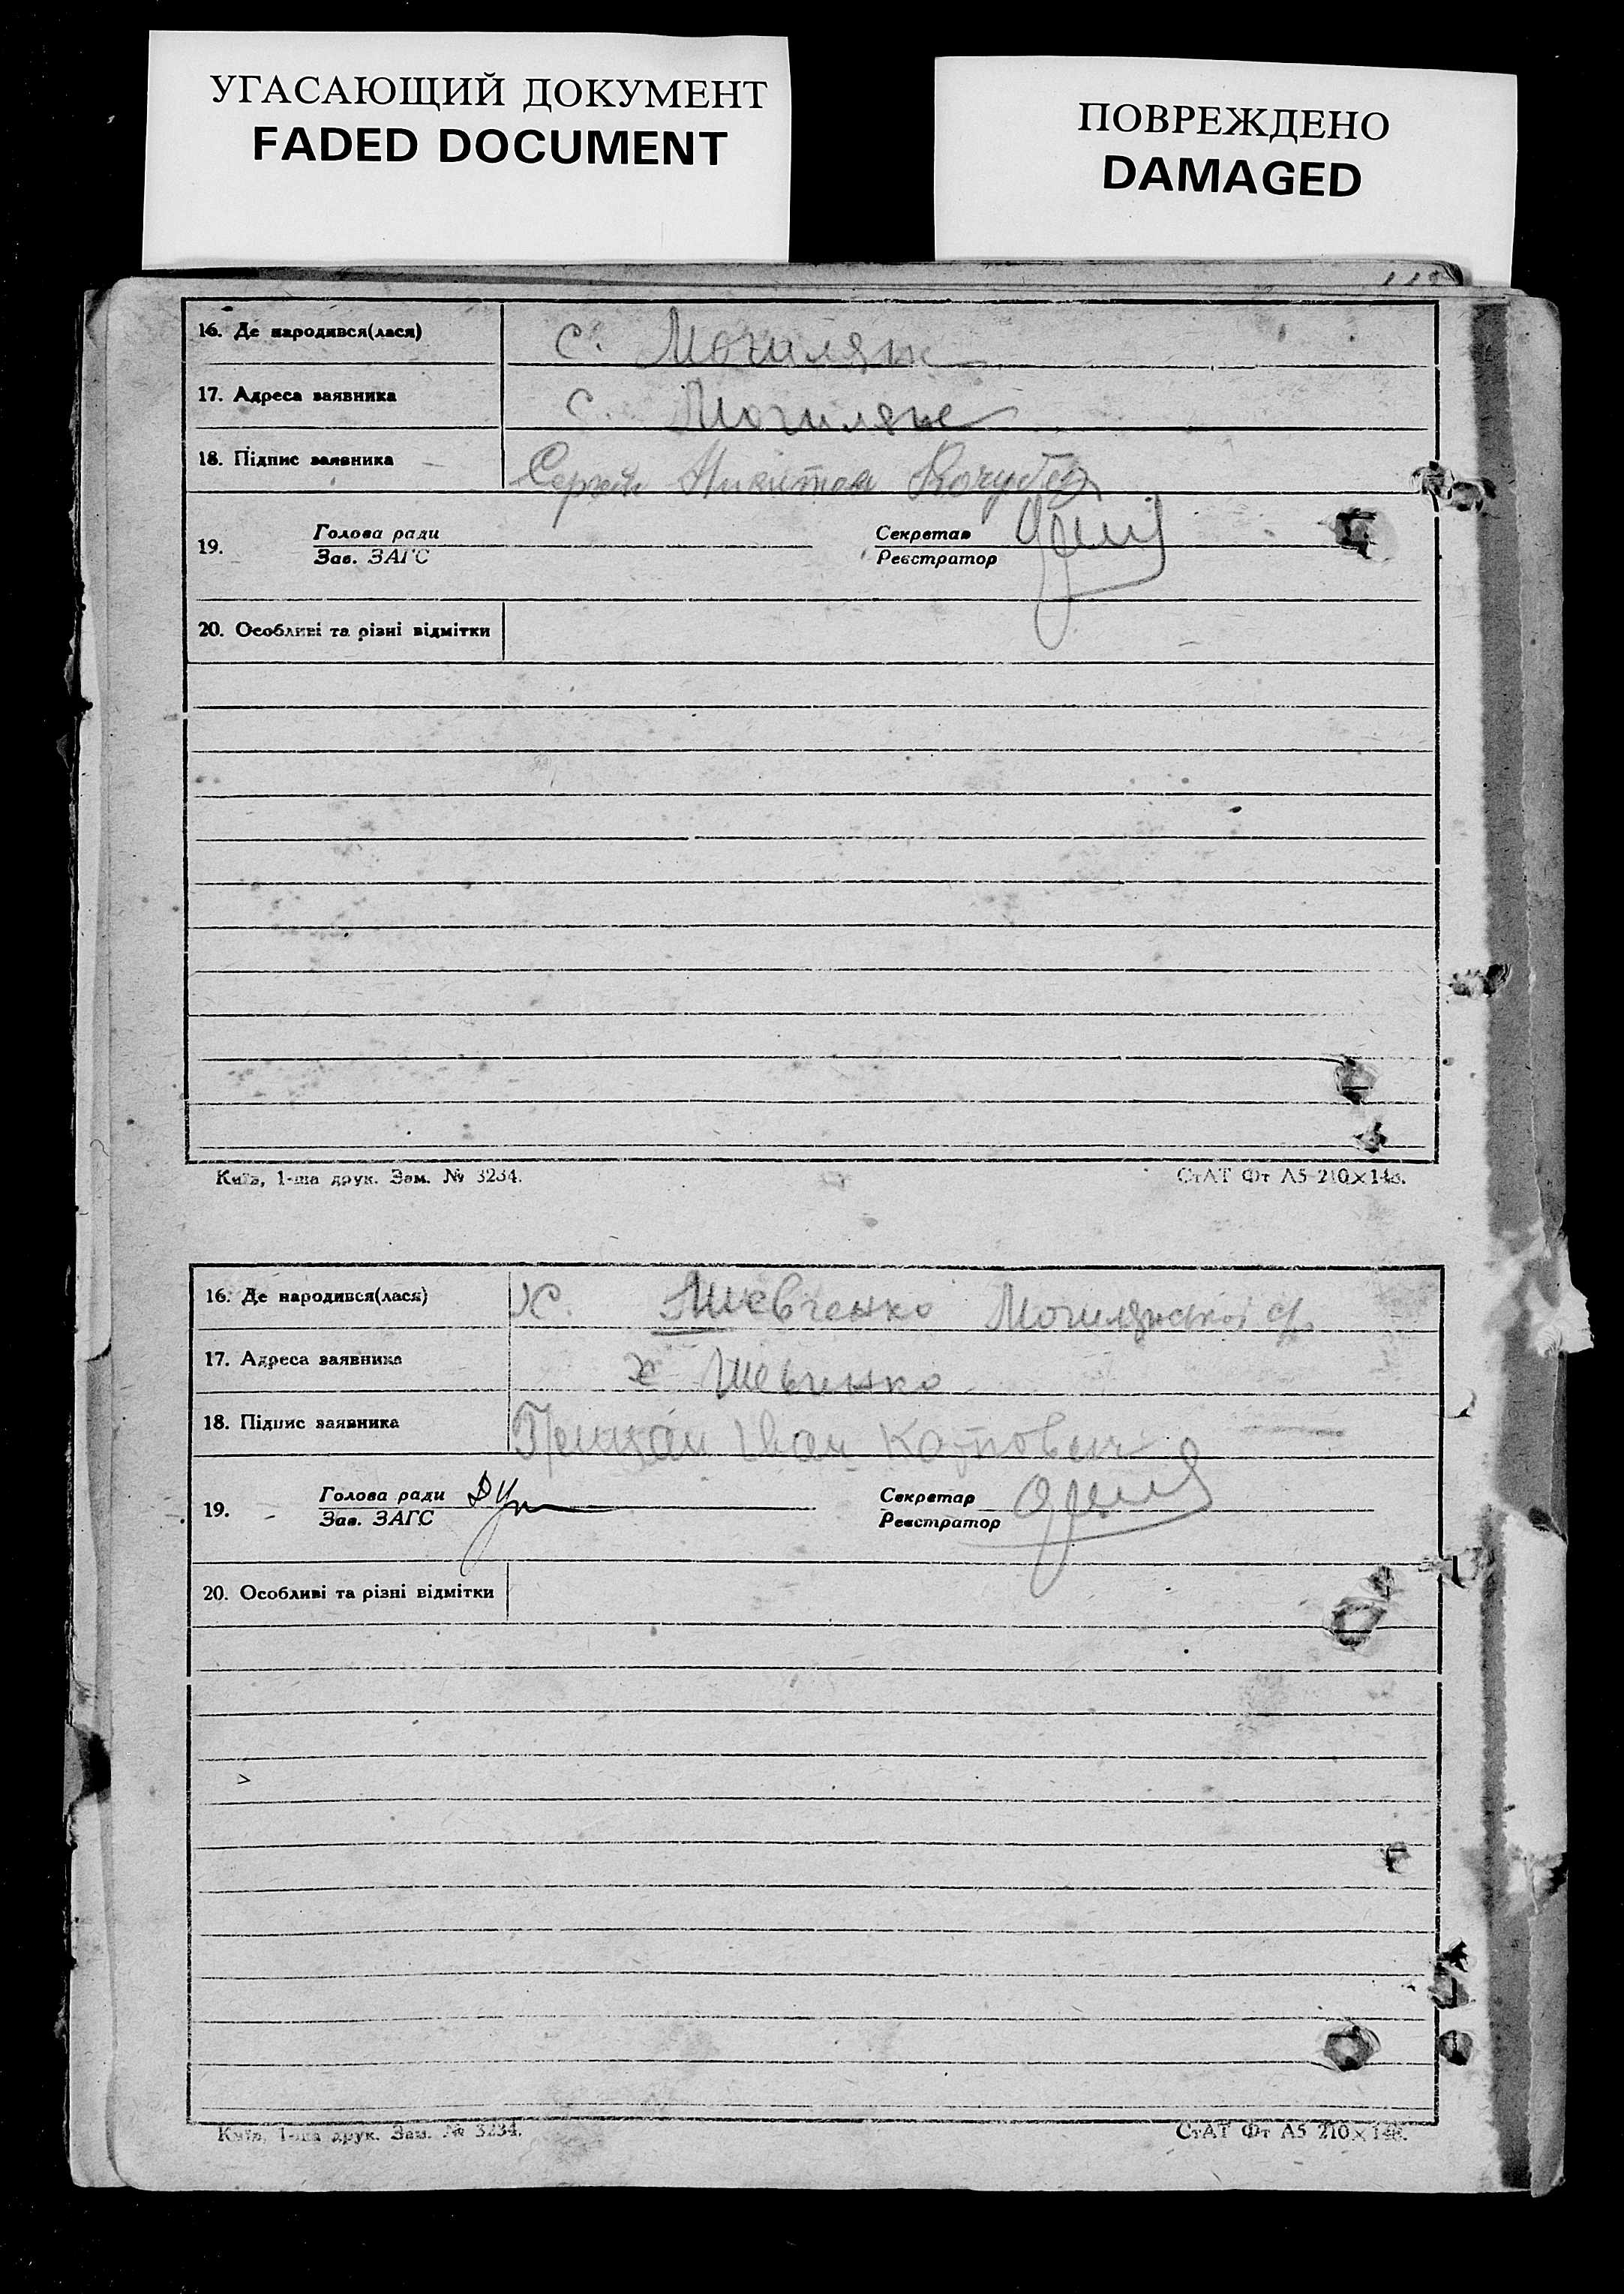 УГАСАЮЩИЙ ДОКУМЕНТ
FADED DOCUMENT
ПОВРЕЖДЕНО
DAMAGED
16. Де народився(лася) с. Могиляни
17. Адреса заявника с. Могиляне
18. Підпис заявника Сергей Никитов Кочубей
Голова ради Секретар
19.
Зав. ЗАГС Реєстратор
20. Особливі та різні відмітки
Київ, 1-ша друк. Зам. № 3234. СтАТ Фт А5-210×148.
16. Де народився(лася) х. Шевченко Могилянської с/р
17. Адреса заявника х Шевченко
18. Підпис заявника Іван
Голова ради Секретар
19.
Зав. ЗАГС Реєстратор
20. Особливі та різні відмітки
Київ, 1-ша друк. Зам. № 3234. СтАТ Фт А5 210×148.